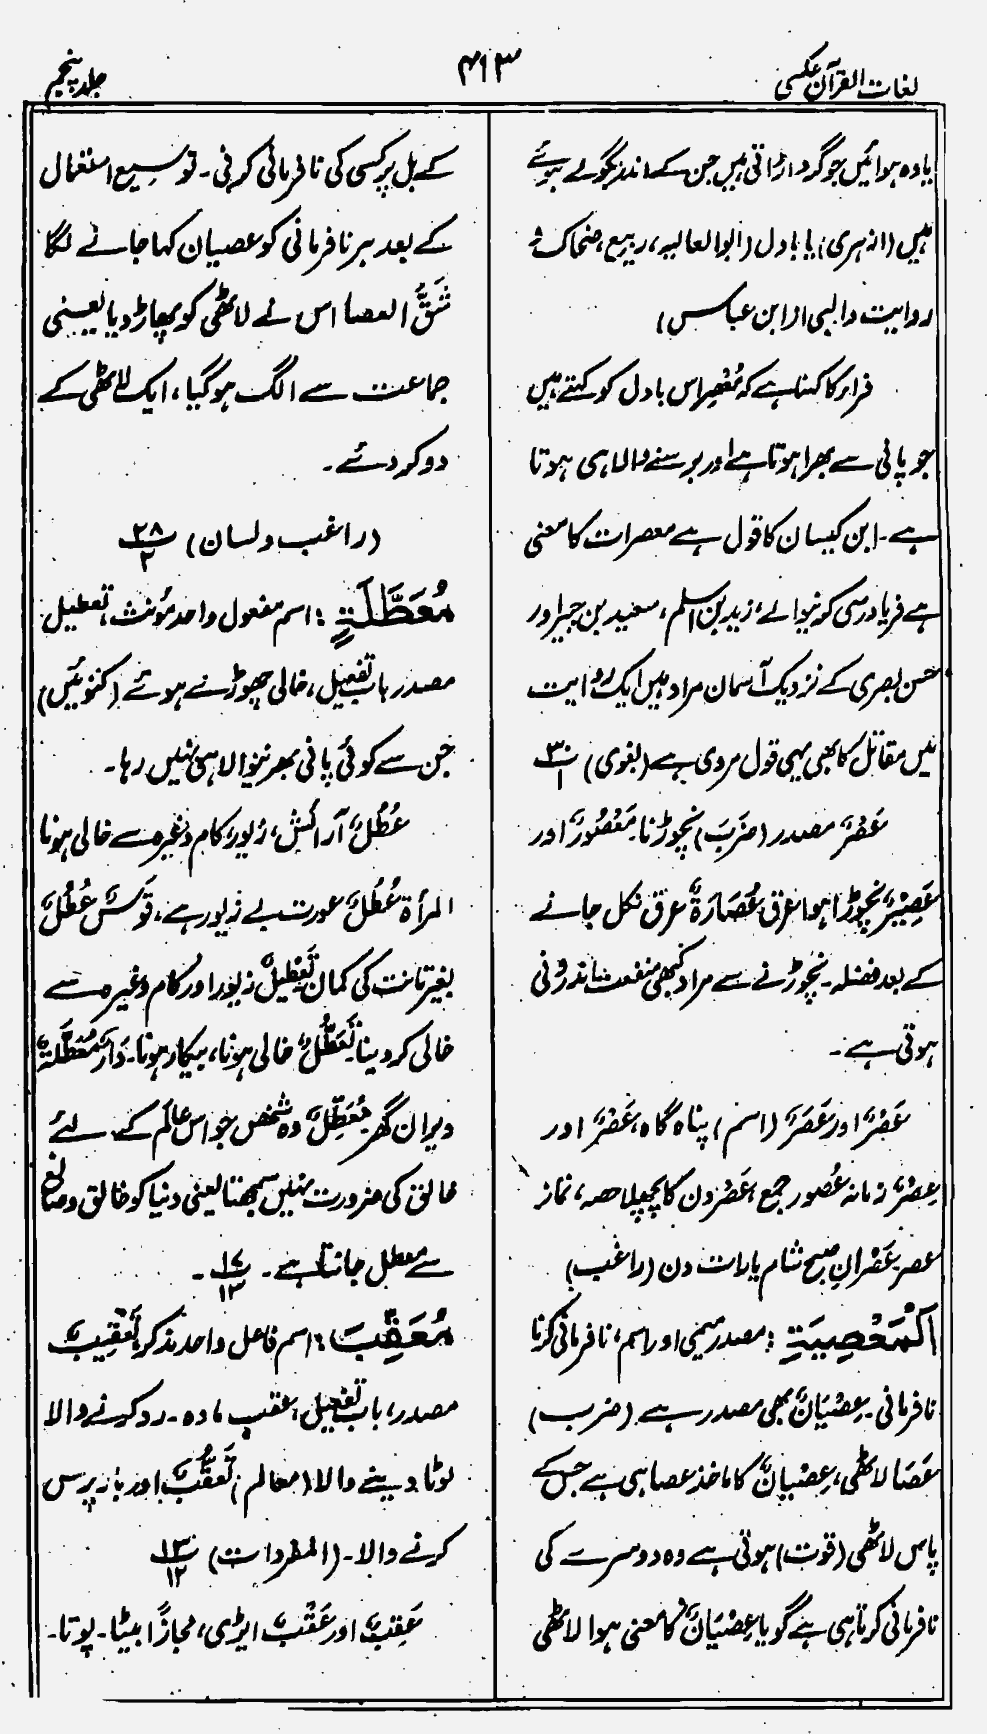 لغات القرآن عکسی
۴۱۳
جلد پنجم
یا وہ ہوائیں جو گرد اڑاتی ہیں جن کے اندر بگولے ہوئے
ہیں (ازہری) یا بادل (ابوالعالیہ، ربیع، ضحاک و
روایت والبی از ابن عباس)
فراء کا کہنا ہے کہ مُعْصِر اس بادل کو کہتے ہیں
جو پانی سے بھرا ہوتا ہے اور برسنے والا ہی ہوتا
ہے۔ ابن کیسان کا قول ہے معصرات کا معنی
ہے فریاد رسی کرنیوالے، زید بن اسلم، سعید بن جبیر اور
حسن بصری کے نزدیک آسمان مراد ہیں ایک روایت
میں مقاتل کا بھی یہی قول مروی ہے (بغوی) ۳۰/۱
عَصْرٌ مصدر (ضَرَبَ) نچوڑنا۔ مَعْصُوْرٌ اور
عَصِیْرٌ نچوڑا ہوا عرق عُصَارَۃٌ عرق نکل جانے
کے بعد فضلہ۔ نچوڑنے سے مراد کبھی منفعت اندوزی
ہوتی ہے۔
عَصْرٌ اور عَصَرٌ (اسم) پناہ گاہ، عَصْرٌ اور
عِصْرٌ زمانہ عُصور جمع، عَصْرٌ دن کا پچھلا حصہ، نماز
عصر عَصْرانِ صبح شام یا رات دن (راغب)
اَلْمَعْصِیَتِ: مصدر میمی اور اسم، نافرمانی کرنا
نافرمانی۔ عِصْیَانٌ بھی مصدر ہے (ضرب)
عَصَا لاٹھی، عِصْیَانٌ کا ماخذ عصا ہی ہے جس کے
پاس لاٹھی (قوت) ہوتی ہے وہ دوسرے کی
نافرمانی کرتا ہی ہے گویا عِصْیَانٌ کا معنی ہوا لاٹھی
کے بل پر کسی کی نافرمانی کرنی۔ توسیع استعمال
کے بعد ہر نافرمانی کو عصیان کہا جانے لگا
شَقَّ العصا اس نے لاٹھی کو پھاڑ دیا یعنی
جماعت سے الگ ہوگیا، ایک لاٹھی کے
دو کر دئے۔
(راغب ولسان) ۲۸/۲
مُعَطَّلَۃٍ: اسم مفعول واحد مؤنث، تعطیل
مصدر باب تفعیل، خالی چھوڑے ہوئے (کنوئیں)
جن سے کوئی پانی بھرنیوالا ہی نہیں رہا۔
عُطُلٌ آرائش، زیور، کام وغیرہ سے خالی ہونا
المرأۃ عُطُلٌ عورت بے زیور ہے، قَوْسٌ عُطُلٌ
بغیر تانت کی کمان تَعْطِیْلٌ زیور اور کام وغیرہ سے
خالی کردینا۔ تَعَطُّلٌ خالی ہونا، بیکار ہونا۔ دَارٌ مُعَطَّلَۃٌ
ویران گھر مُعَطِّلٌ وہ شخص جو اس عالَم کے لئے
خالق کی ضرورت نہیں سمجھتا یعنی دنیا کو خالق وصانع
سے معطل جانتا ہے۔ ۱۷/۱۳۔
مُعَقِّبَ: اسم فاعل واحد مذکر تَعْقِیْبٌ
مصدر، باب تفعیل، عقب مادہ۔ رد کرنے والا
لوٹا دینے والا (معالم) تَعَقُّبٌ اور باز پرس
کرنے والا۔ (المفردات) ۱۳/۱۲
عَقِبٌ اور عَقْبٌ ایڑی، مجازاً بیٹا۔ پوتا۔